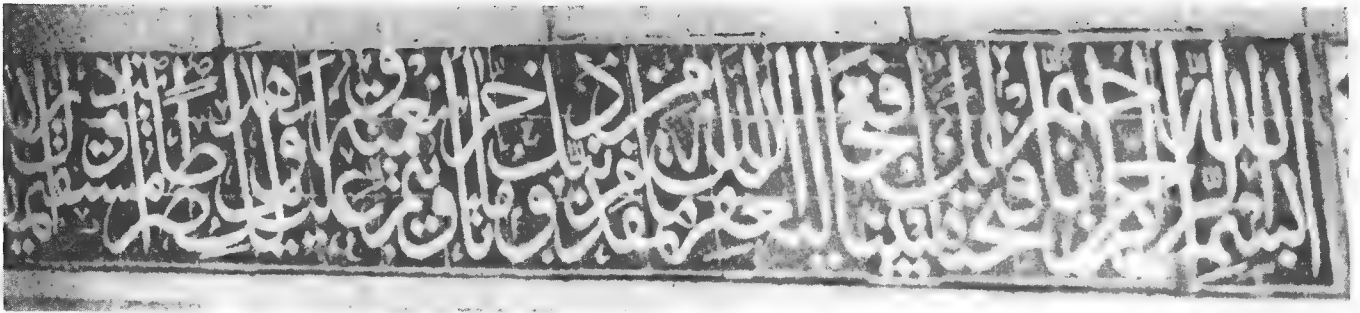 بسم الله الرحمن الرحيم إنا فتحنا لك فتحا مبينا ليغفر لك الله ما تقدم من ذنبك وما تأخر ويتم نعمته عليك ويهديك صراطا مستقيما